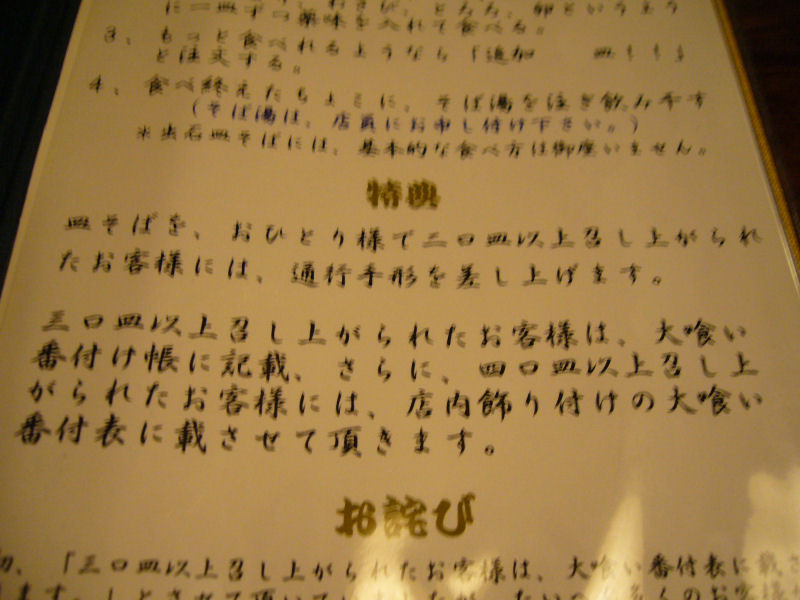 に一皿ずつ薬味を入れて食べる。
3、もっと食べれるようなら「追加　　皿！！」
と注文する。
4、食べ終えたちょこに、そば湯を注ぎ飲み干す
(そば湯は、店員にお申し付け下さい。)
※出石皿そばには、基本的な食べ方は御座いません。
特典
皿そばを、おひとり様で二〇皿以上召し上がられ
たお客様には、通行手形を差し上げます。
三〇皿以上召し上がられたお客様は、大喰い
番付け帳に記載、さらに、四〇皿以上召し上
がられたお客様には、店内飾り付けの大喰い
番付表に載させて頂きます。
お詫び
「三〇皿以上召し上がられたお客様は、大喰い番付表に載さ